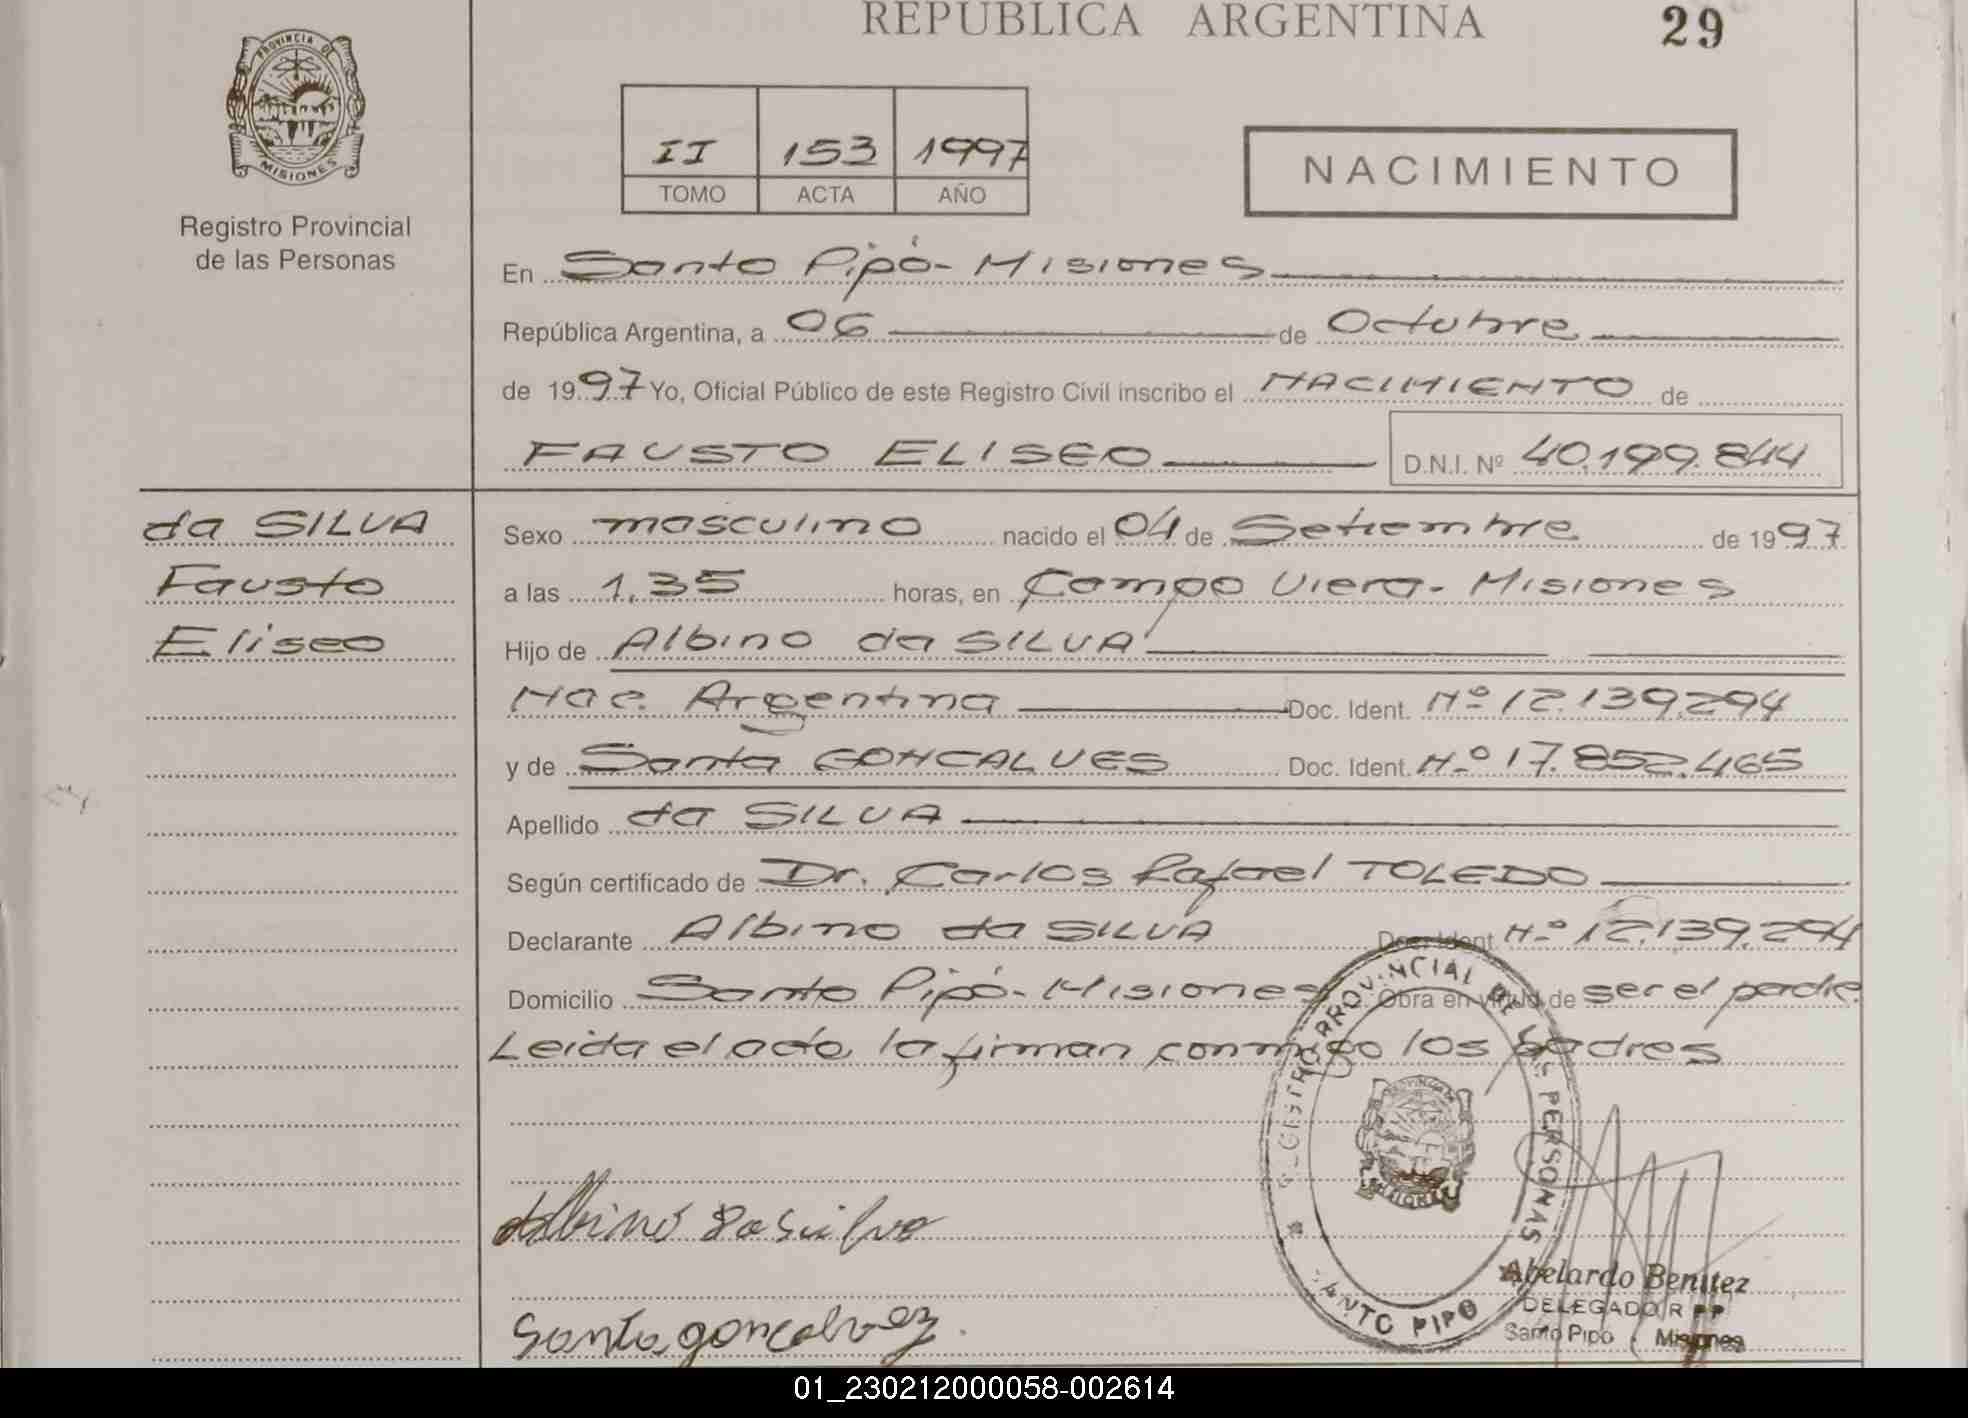 REPUBLICA ARGENTINA
29
PROVINCIA DE
MISIONES
Registro Provincial
de las Personas
II 153 1997
TOMO ACTA AÑO
NACIMIENTO
En Santo Pipó - Misiones
República Argentina, a 06 de Octubre
de 1997 Yo, Oficial Público de este Registro Civil inscribo el NACIMIENTO de
FAUSTO ELISEO D.N.I. Nº 40.199.844
da SILVA
Fausto
Eliseo
Sexo masculino nacido el 04 de Setiembre de 1997
a las 1,35 horas, en Campo Viera - Misiones
Hijo de Albino da SILVA
Nac. Argentina Doc. Ident. Nº 12.139.294
y de Santa GONCALVES Doc. Ident. Nº 17.852.465
Apellido da SILVA
Según certificado de Dr. Carlos Rafael TOLEDO
Declarante Albino da SILVA Doc. Ident. Nº 12.139.294
Domicilio Santo Pipó - Misiones Obra en virtud de ser el padre
Leida el acta, la firman conmigo los padres
REGISTRO PROVINCIAL DE LAS PERSONAS
SANTO PIPO
Albino Da Silva
Santa goncalvez.
Abelardo Benitez
DELEGADO R P P
Santo Pipó - Misiones
01_230212000058-002614